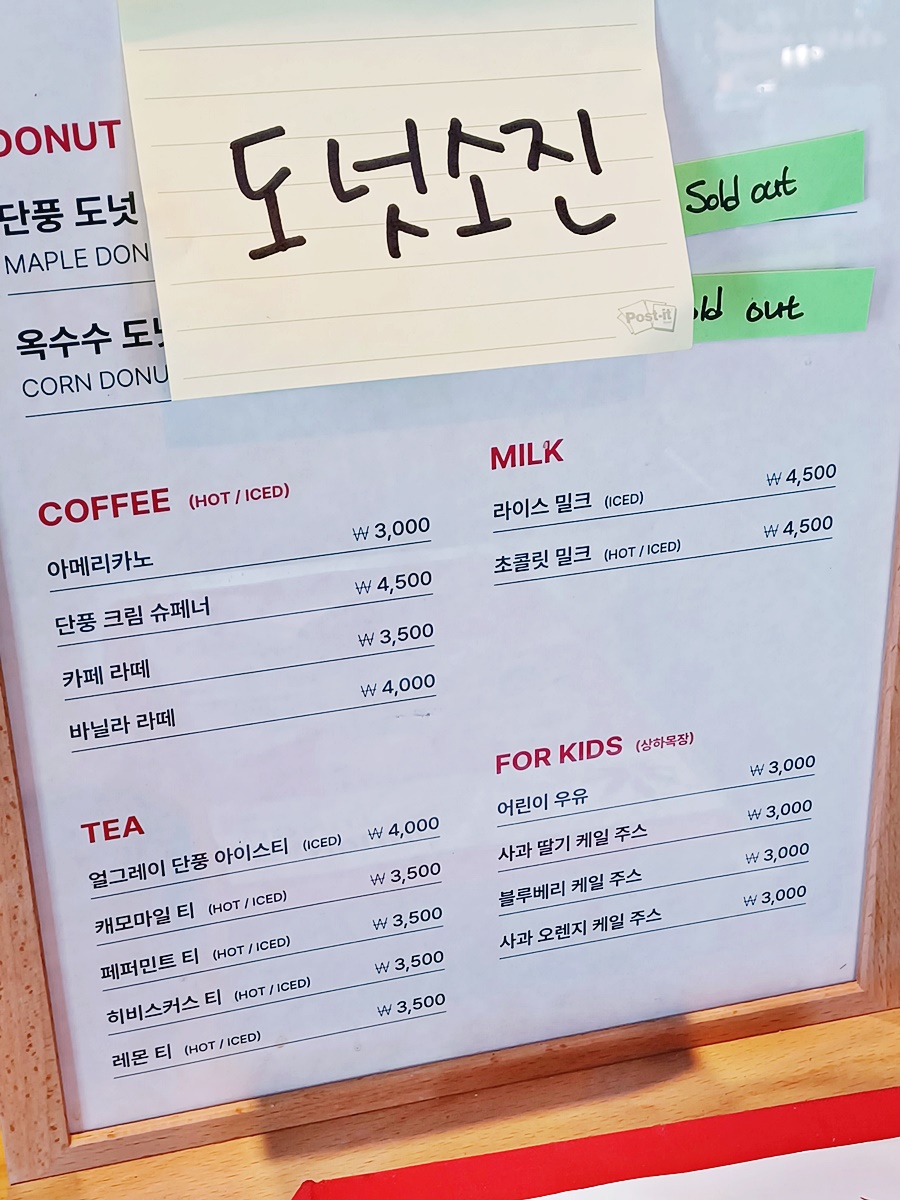 도넛소진
Post-it
DONUT
단풍 도넛
Sold out
MAPLE
옥수수
out
CORN
COFFEE (HOT / ICED)
아메리카노 ₩ 3,000
단풍 크림 슈페너 ₩ 4,500
카페 라떼 ₩ 3,500
바닐라 라떼 ₩ 4,000
MILK
라이스 밀크 (ICED) ₩ 4,500
초콜릿 밀크 (HOT / ICED) ₩ 4,500
TEA
얼그레이 단풍 아이스티 (ICED) ₩ 4,000
캐모마일 티 (HOT / ICED) ₩ 3,500
페퍼민트 티 (HOT / ICED) ₩ 3,500
히비스커스 티 (HOT / ICED) ₩ 3,500
레몬 티 (HOT / ICED) ₩ 3,500
FOR KIDS (상하목장)
어린이 우유 ₩ 3,000
사과 딸기 케일 주스 ₩ 3,000
블루베리 케일 주스 ₩ 3,000
사과 오렌지 케일 주스 ₩ 3,000